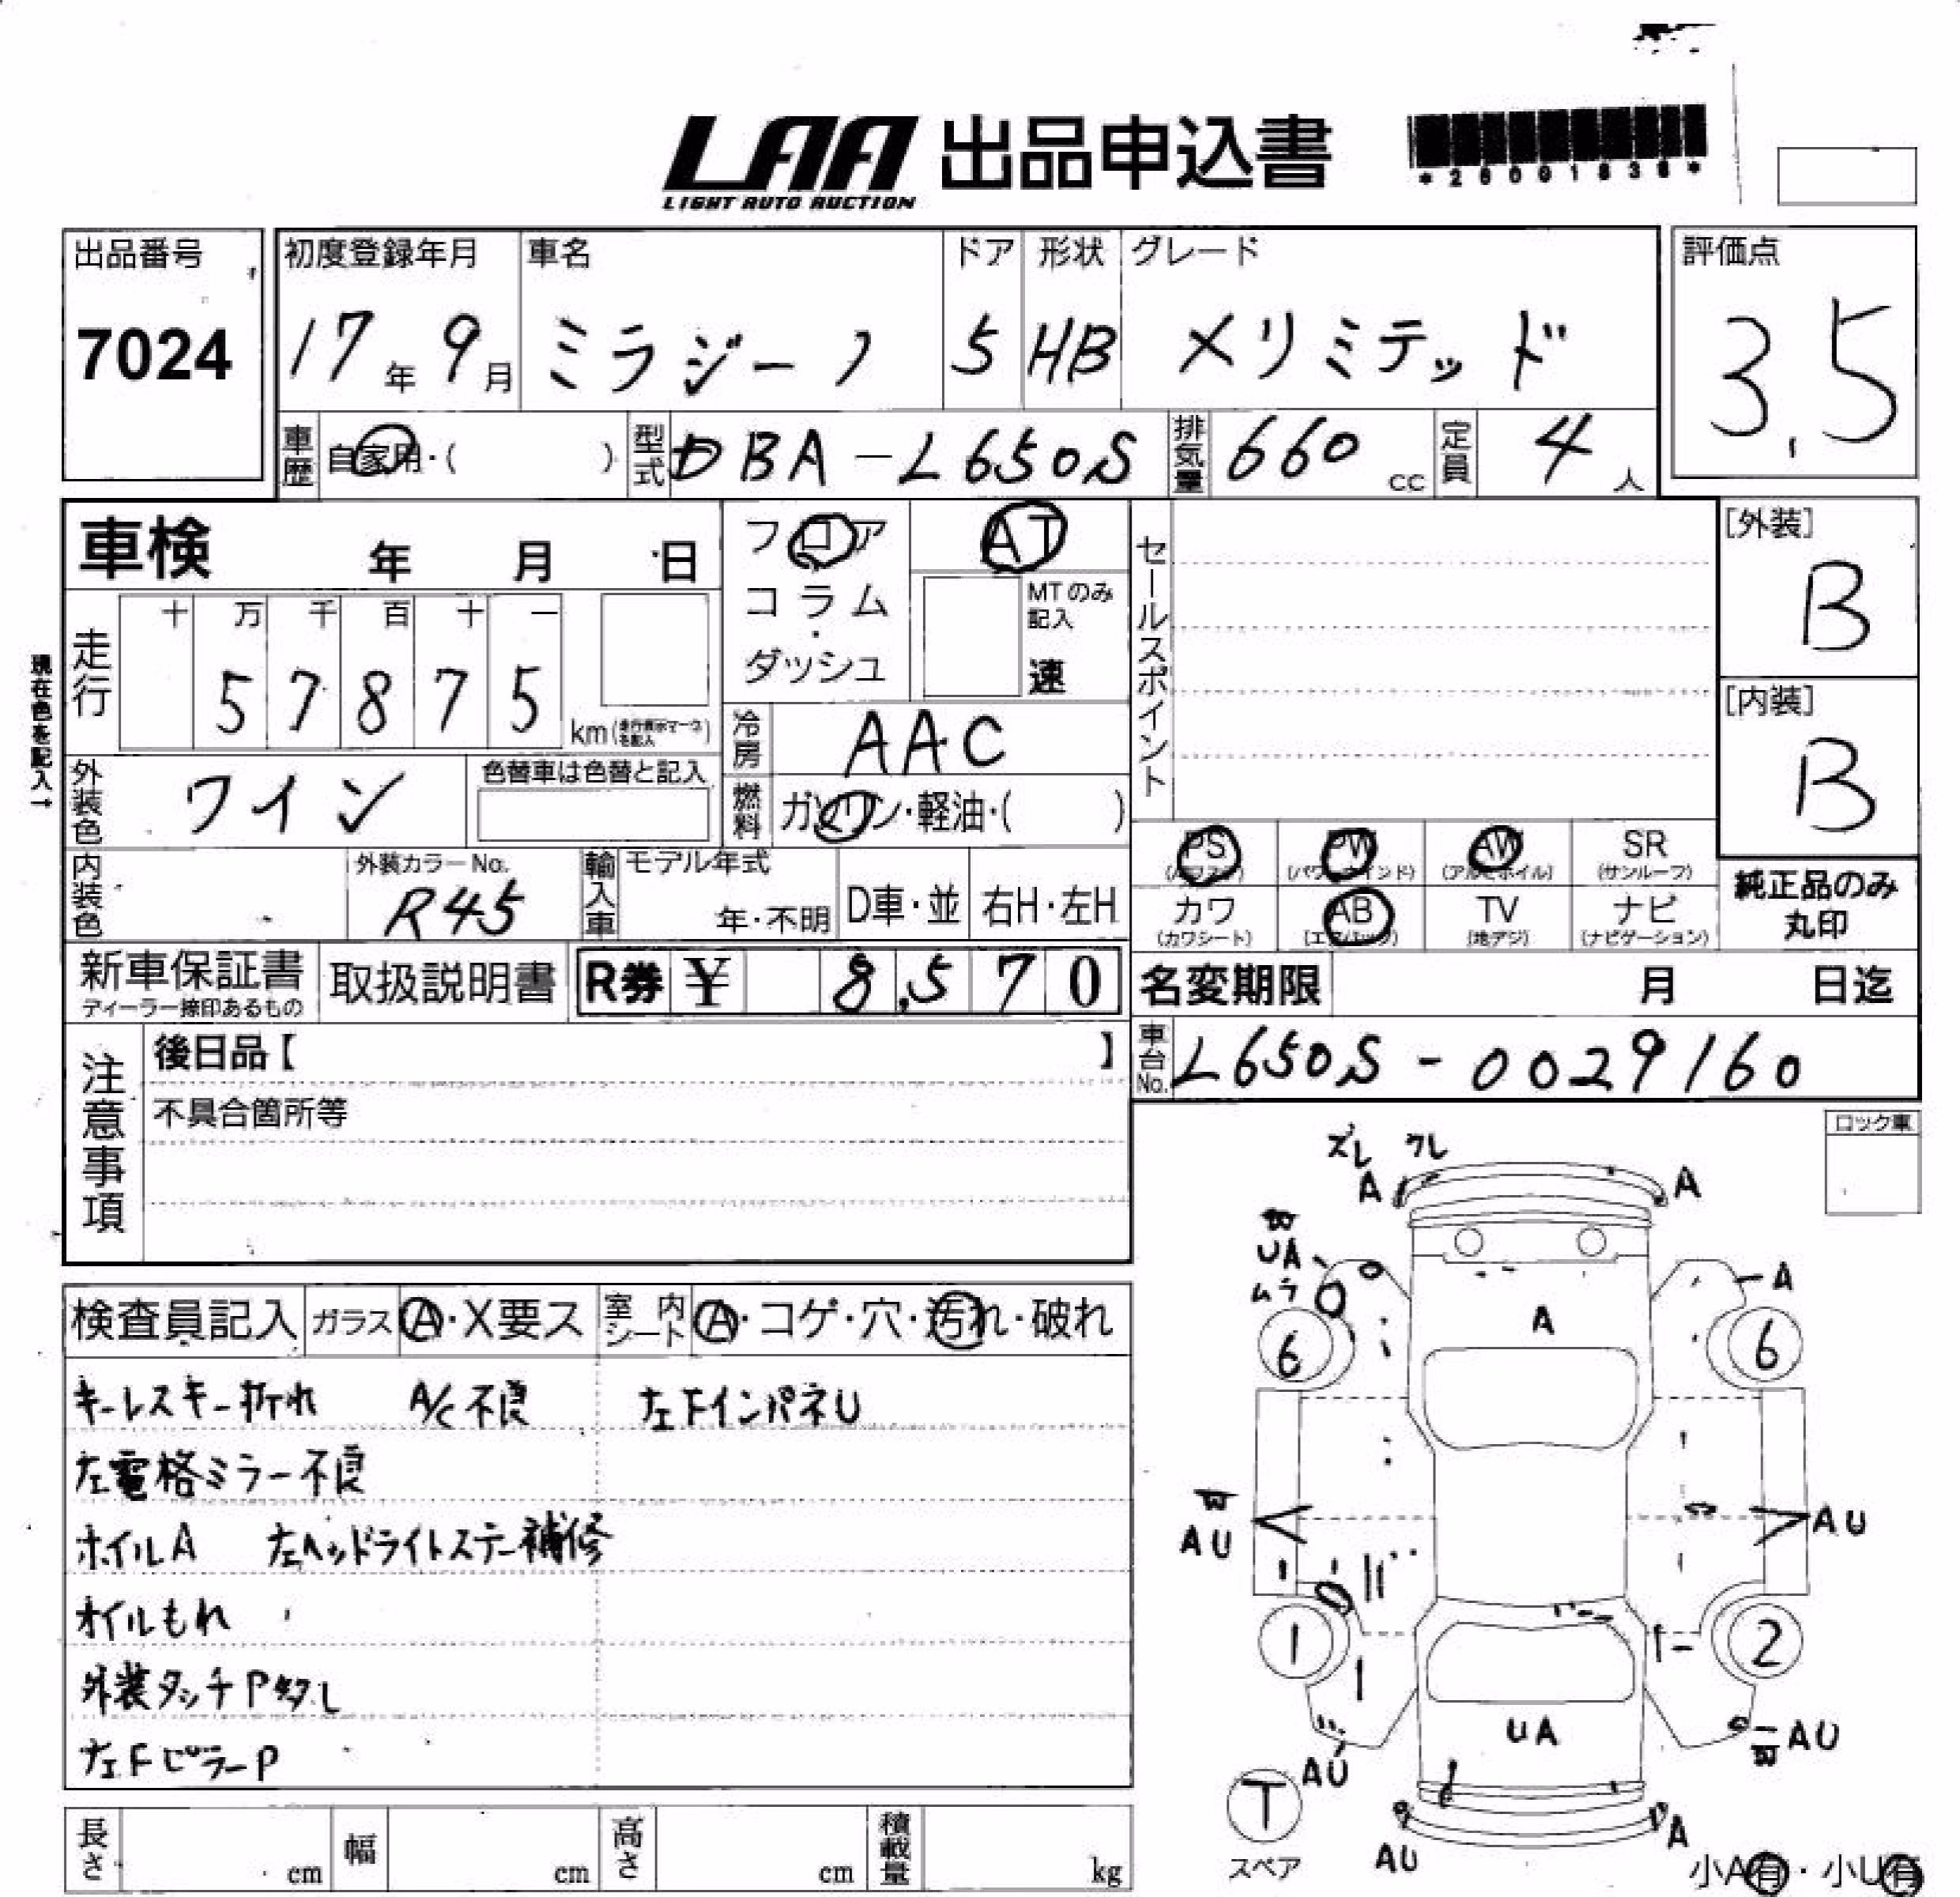 LAA 出品申込書
LIGHT AUTO AUCTION
*26001836*
出品番号
7024
初度登録年月
17年 9月
車名
ミラジーノ
ドア
5
形状
HB
グレード
メリミテッド
評価点
3.5
車歴 自家用・( )
型式 DBA-L650S
排気量 660 cc
定員 4 人
車検 年 月 日
フロア
コラム
・
ダッシュ
AT
MTのみ
記入
速
セールスポイント
[外装]
B
[内装]
B
現在色を記入→
走行
十 万 千 百 十 一
5 7 8 7 5
km (走行表示マークを記入)
冷房 AAC
外装色 ワイン
色替車は色替と記入
燃料 ガソリン・軽油・( )
内装色
外装カラーNo.
R45
輸入車
モデル年式
年・不明
D車・並
右H・左H
PS
(パワステ)
PW
(パワーウインド)
AW
(アルミホイル)
SR
(サンルーフ)
カワ
(カワシート)
AB
(エアバック)
TV
(地デジ)
ナビ
(ナビゲーション)
純正品のみ
丸印
新車保証書
ディーラー捺印あるもの
取扱説明書
R券 ¥ 8,570
名変期限 月 日迄
車台No. L650S-0029160
注意事項
後日品【 】
不具合箇所等
ロック車
検査員記入
ガラス A・X要ス
室内シート A・コゲ・穴・汚れ・破れ
キーレスキー折れ A/C不良 左FインパネU
左電格ミラー不良
ホイルA 左ヘッドライトステー補修
オイルもれ
外装タッチP多し
左FピラーP
ズレ ワレ
A A
UA
ムラ
A
6 A 6
AU AU
1 2
UA
AU AU
T
スペア
AU A
小A有・小U有
長さ cm
幅 cm
高さ cm
積載量 kg